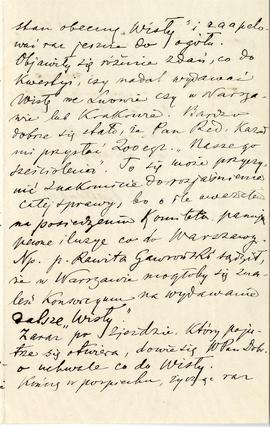 stan obecny „Wisły" i zaapelo-
wać raz jeszcze do ogółu.
Objawiły się różnice zdań, co do
kwestyi, czy nadal wydawać
Wisłę we Lwowie czy w Warsza-
wie lub Krakowie. Bardzo
dobrze się stało, że Pan Red. kazał
mi przysłać 200 egz. „Naszego
sześciolecia". To się może przyczy-
nić znakomicie do rozjaśnienia
całej sprawy, bo o ile uważałem
na posiedzeniu Komitetu, panują
pewne iluzye co do Warszawy.
Np. p. Rawita Gawroński sądził,
że w Warszawie mogłoby się zna-
leść konsorcyum na wydawanie
dalsze „Wisły".
Zaraz po zjeździe, który poju-
trze się otwiera, dowie się WPan Dobr.
o uchwale co do Wisły.
Kończę w pośpiechu, życząc raz